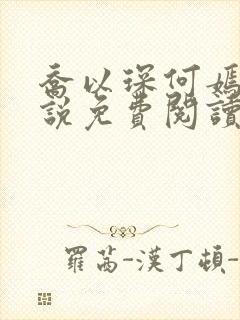 喬以琛何嫣
說免費閱讀
羅茜-漢丁頓-